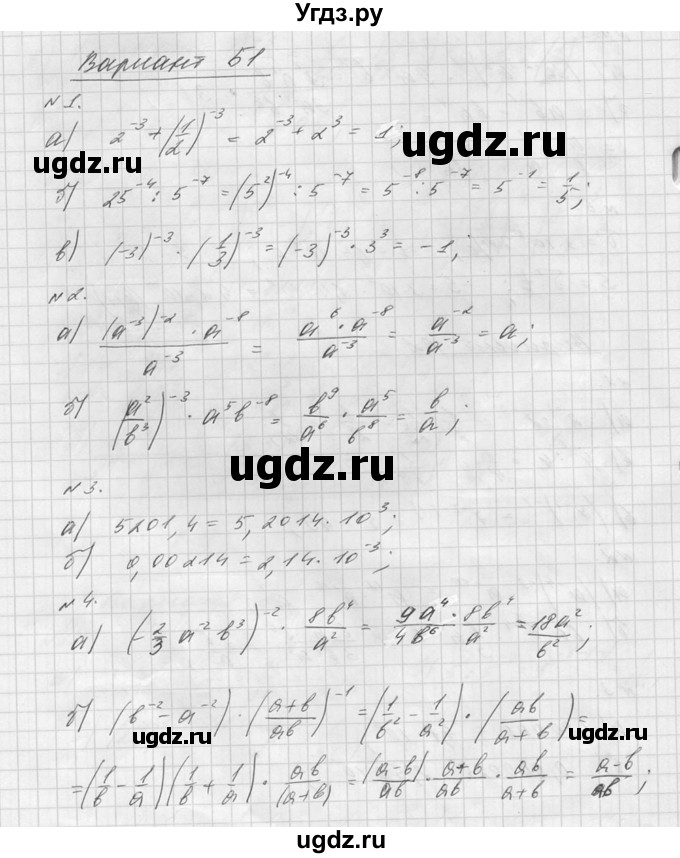 Угдз.ру
Вариант Б1
№1.
а) 2^{-3} + (1/2)^{-3} = 2^{-3} + 2^3 = 1;
ugdz.ru
б) 25^{-4} : 5^{-7} = (5^2)^{-4} : 5^{-7} = 5^{-8} : 5^{-7} = 5^{-1} = 1/5;
в) (-3)^{-3} · (1/3)^{-3} = (-3)^{-3} · 3^3 = -1;
№2.
ugdz.ru
а) ((a^{-3})^{-2} · a^{-8})/a^{-3} = (a^6 · a^{-8})/a^{-3} = a^{-2}/a^{-3} = a;
б) (a^2/b^3)^{-3} · a^5 b^{-8} = b^9/a^6 · a^5/b^8 = b/a;
ugdz.ru
№3.
а) 5201,4 = 5,2014 · 10^3;
б) 0,00214 = 2,14 · 10^{-3};
ugdz.ru
№4.
а) (-2/3 a^{-2} b^3)^{-2} · 8b^4/a^2 = 9a^4/4b^6 · 8b^4/a^2 = 18a^2/b^2;
ugdz.ru
б) (b^{-2} - a^{-2}) · ((a+b)/ab)^{-1} = (1/b^2 - 1/a^2) · (ab/(a+b)) =
= (1/b - 1/a)(1/b + 1/a) · ab/(a+b) = (a-b)/ab · (a+b)/ab · ab/(a+b) = (a-b)/ab;
ugdz.ru
ugdz.ru